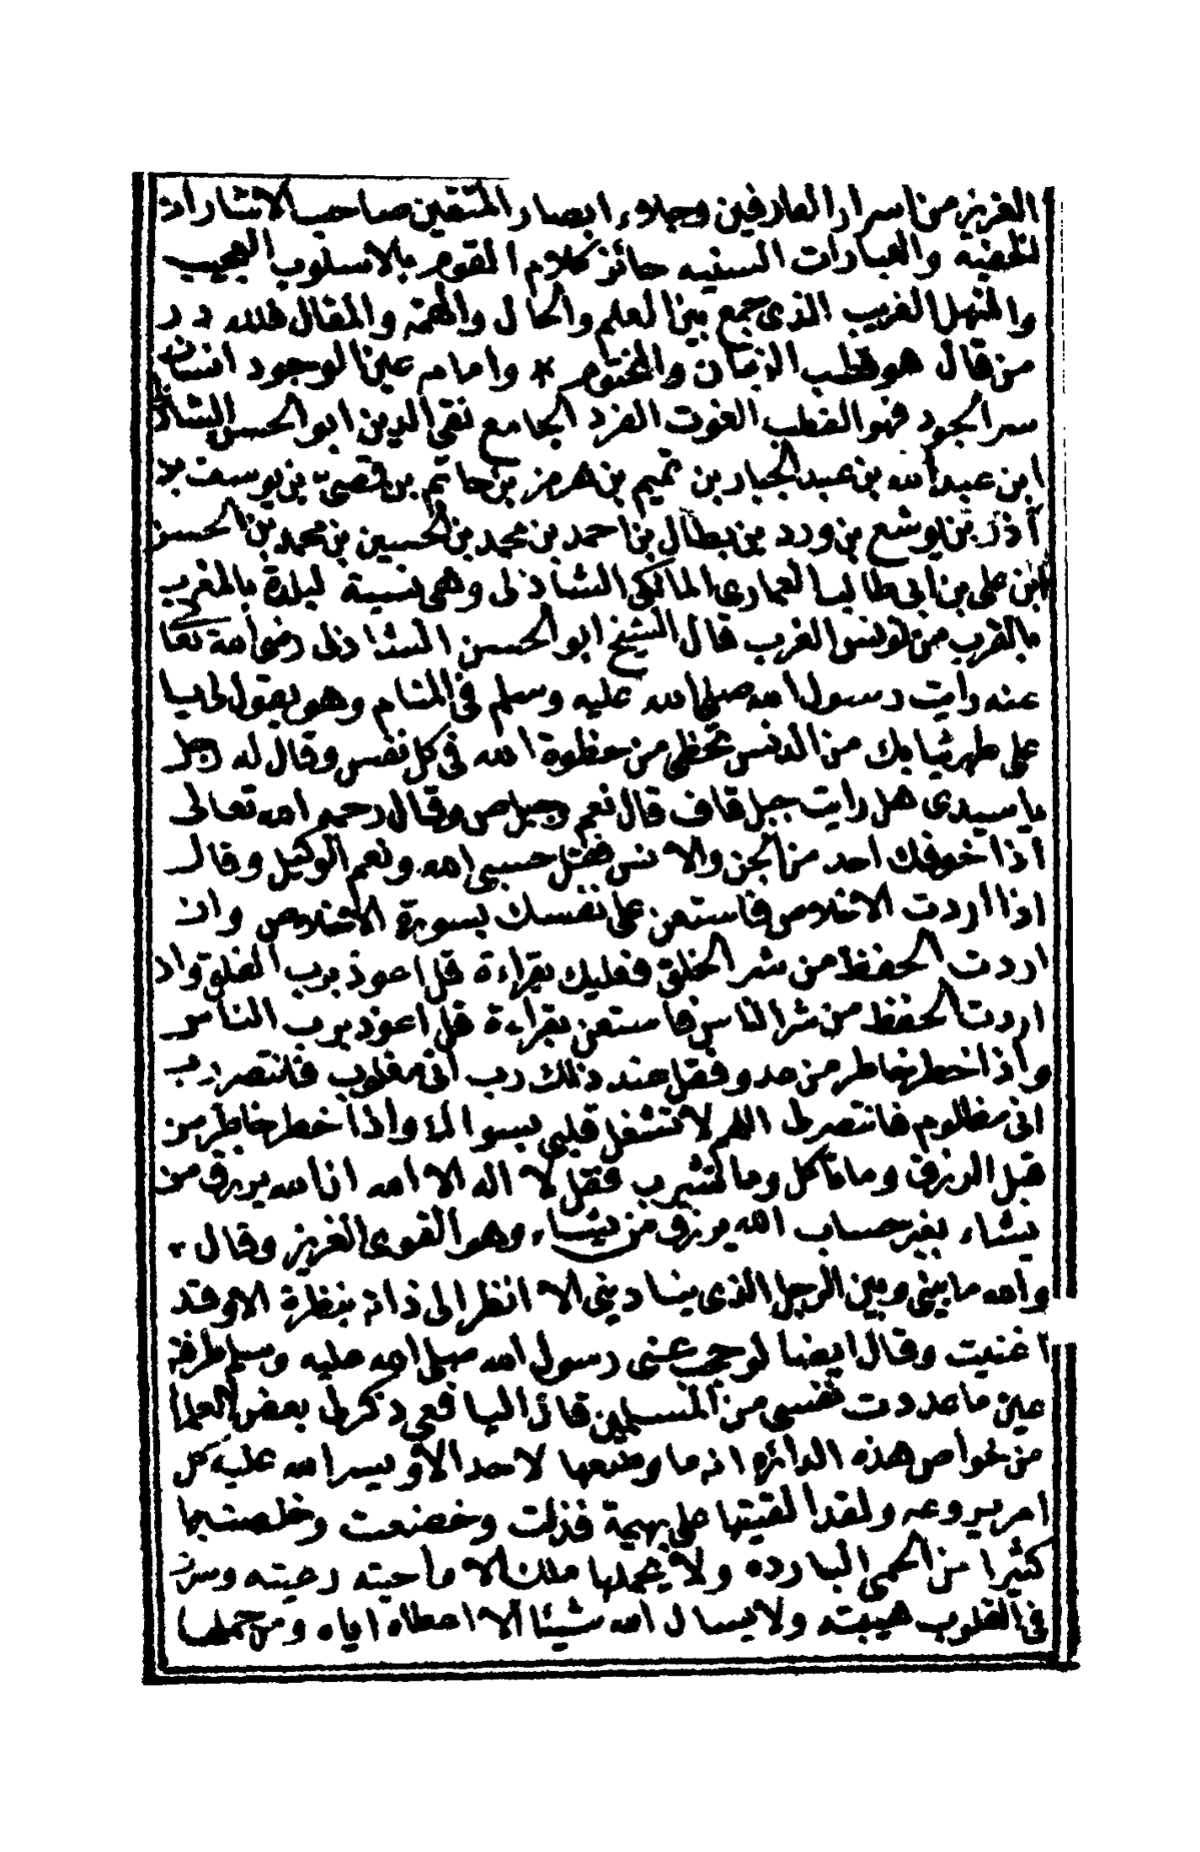 العزيز من اسرار العارفين وجلاء ابصار المتقين صاحب الاشارات
الخفية والعبارات السنيه حائز كلام القوم بالاسلوب العجيب
والمنهل الغريب الذى جمع بين العلم والحال والهمة والمقال فلله در
من قال هو قطب الزمان والمختوم * وامام عين الوجود انسان
سر الجود فهو القطب الغوت الفرد الجامع تقى الدين ابو الحسن الشاذلى
ابن عبد الله بن عبد الجبار بن تميم بن هرمز بن حاتم بن قصى بن يوسف بن
أذز بن يوشع بن ورد بن بطال بن احمد بن محمد بن الحسين بن محمد بن الحسن
ابن على بن ابى طالب الغمارى المالكى الشاذلى وهى نسبة لبلدة بالمغرب
بالقرب من تونس الغرب قال الشيخ ابو الحسن الشاذلى رضى الله تعا
عنه رايت رسول الله صلى الله عليه وسلم فى المنام وهو يقول لى يا
على طهر ثيابك من الدنس تحظى من حظوة الله فى كل نفس وقال له رجل
يا سيدى هل رايت جبل قاف قال نعم وجبل ص وقال رحمه الله تعالى
اذا خوفك احد من الجن والانس فقل حسبى الله ونعم الوكيل وقال
اذا اردت الاخلاص فاستعن على نفسك بسورة الاخلاص وان
اردت الحفظ من شر الخلق فعليك بقراءة قل اعوذ برب الفلق واد
اردت الحفظ من شر الناس فاستعن بقراءة قل اعوذ برب الناس
واذا خطر خاطر من عدو فقل عند ذلك رب انى مغلوب فانتصر رب
انى مظلوم فانتصر لى اللهم لا تشغل قلبى بسواك واذا خطر خاطر من
قبل الرزق وما تأكل وما تشرب فقل لا اله الا الله ان الله يرزق من
يشاء بغير حساب الله يرزق من يشاء وهو القوى العزيز وقال
والله ما بينى وبين الرجل الذى ينادينى الا انظر الى ذاته بنظرة الا وقد
اغنيت وقال ايضا لو حجب عنى رسول الله صلى الله عليه وسلم طرفة
عين ما عددت نفسى من المسلمين قال اليافعى ذكر لى بعض العلما
من خواص هذه الدائرة انه ما وضعها لاحد الا ويسر الله عليه كل
امر يروعه ولقد القيتها على بهيمة فذلت وخضعت وخلصت بها
كثيرا من الحمى البارده ولا يحملها ملك الا واحبته رعيته وسرت
فى القلوب هيبته ولا يسال الله شيئا الا اعطاه اياه ومن حملها